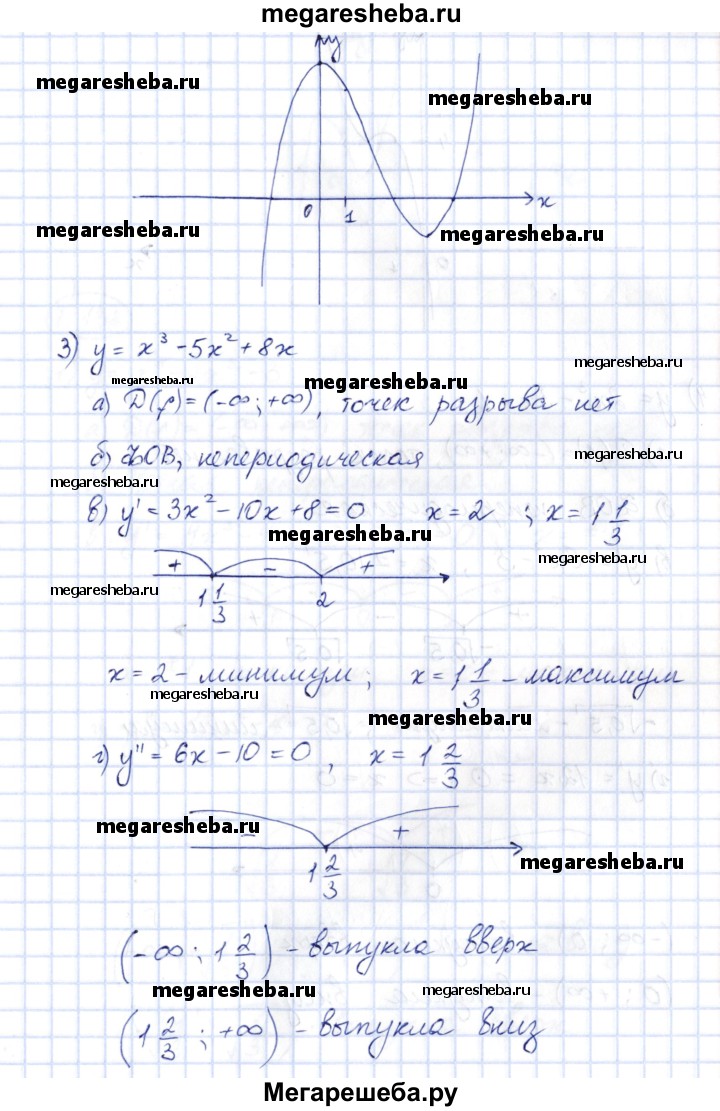 megaresheba.ru
y
megaresheba.ru
megaresheba.ru
0 1 x
megaresheba.ru
megaresheba.ru
3) y = x³ - 5x² + 8x
megaresheba.ru
megaresheba.ru
megaresheba.ru
а) D(f) = (-∞; +∞), точек разрыва нет
б) ФОВ, непериодическая
megaresheba.ru
megaresheba.ru
в) y' = 3x² - 10x + 8 = 0 x = 2 ; x = 1 1/3
megaresheba.ru
megaresheba.ru
+ - +
megaresheba.ru
1 1/3 2
x = 2 - минимум; x = 1 1/3 - максимум
megaresheba.ru
megaresheba.ru
г) y'' = 6x - 10 = 0, x = 1 2/3
megaresheba.ru
- +
megaresheba.ru
1 2/3
(-∞; 1 2/3) - выпукла вверх
megaresheba.ru
megaresheba.ru
(1 2/3; +∞) - выпукла вниз
Мегарешеба.ру